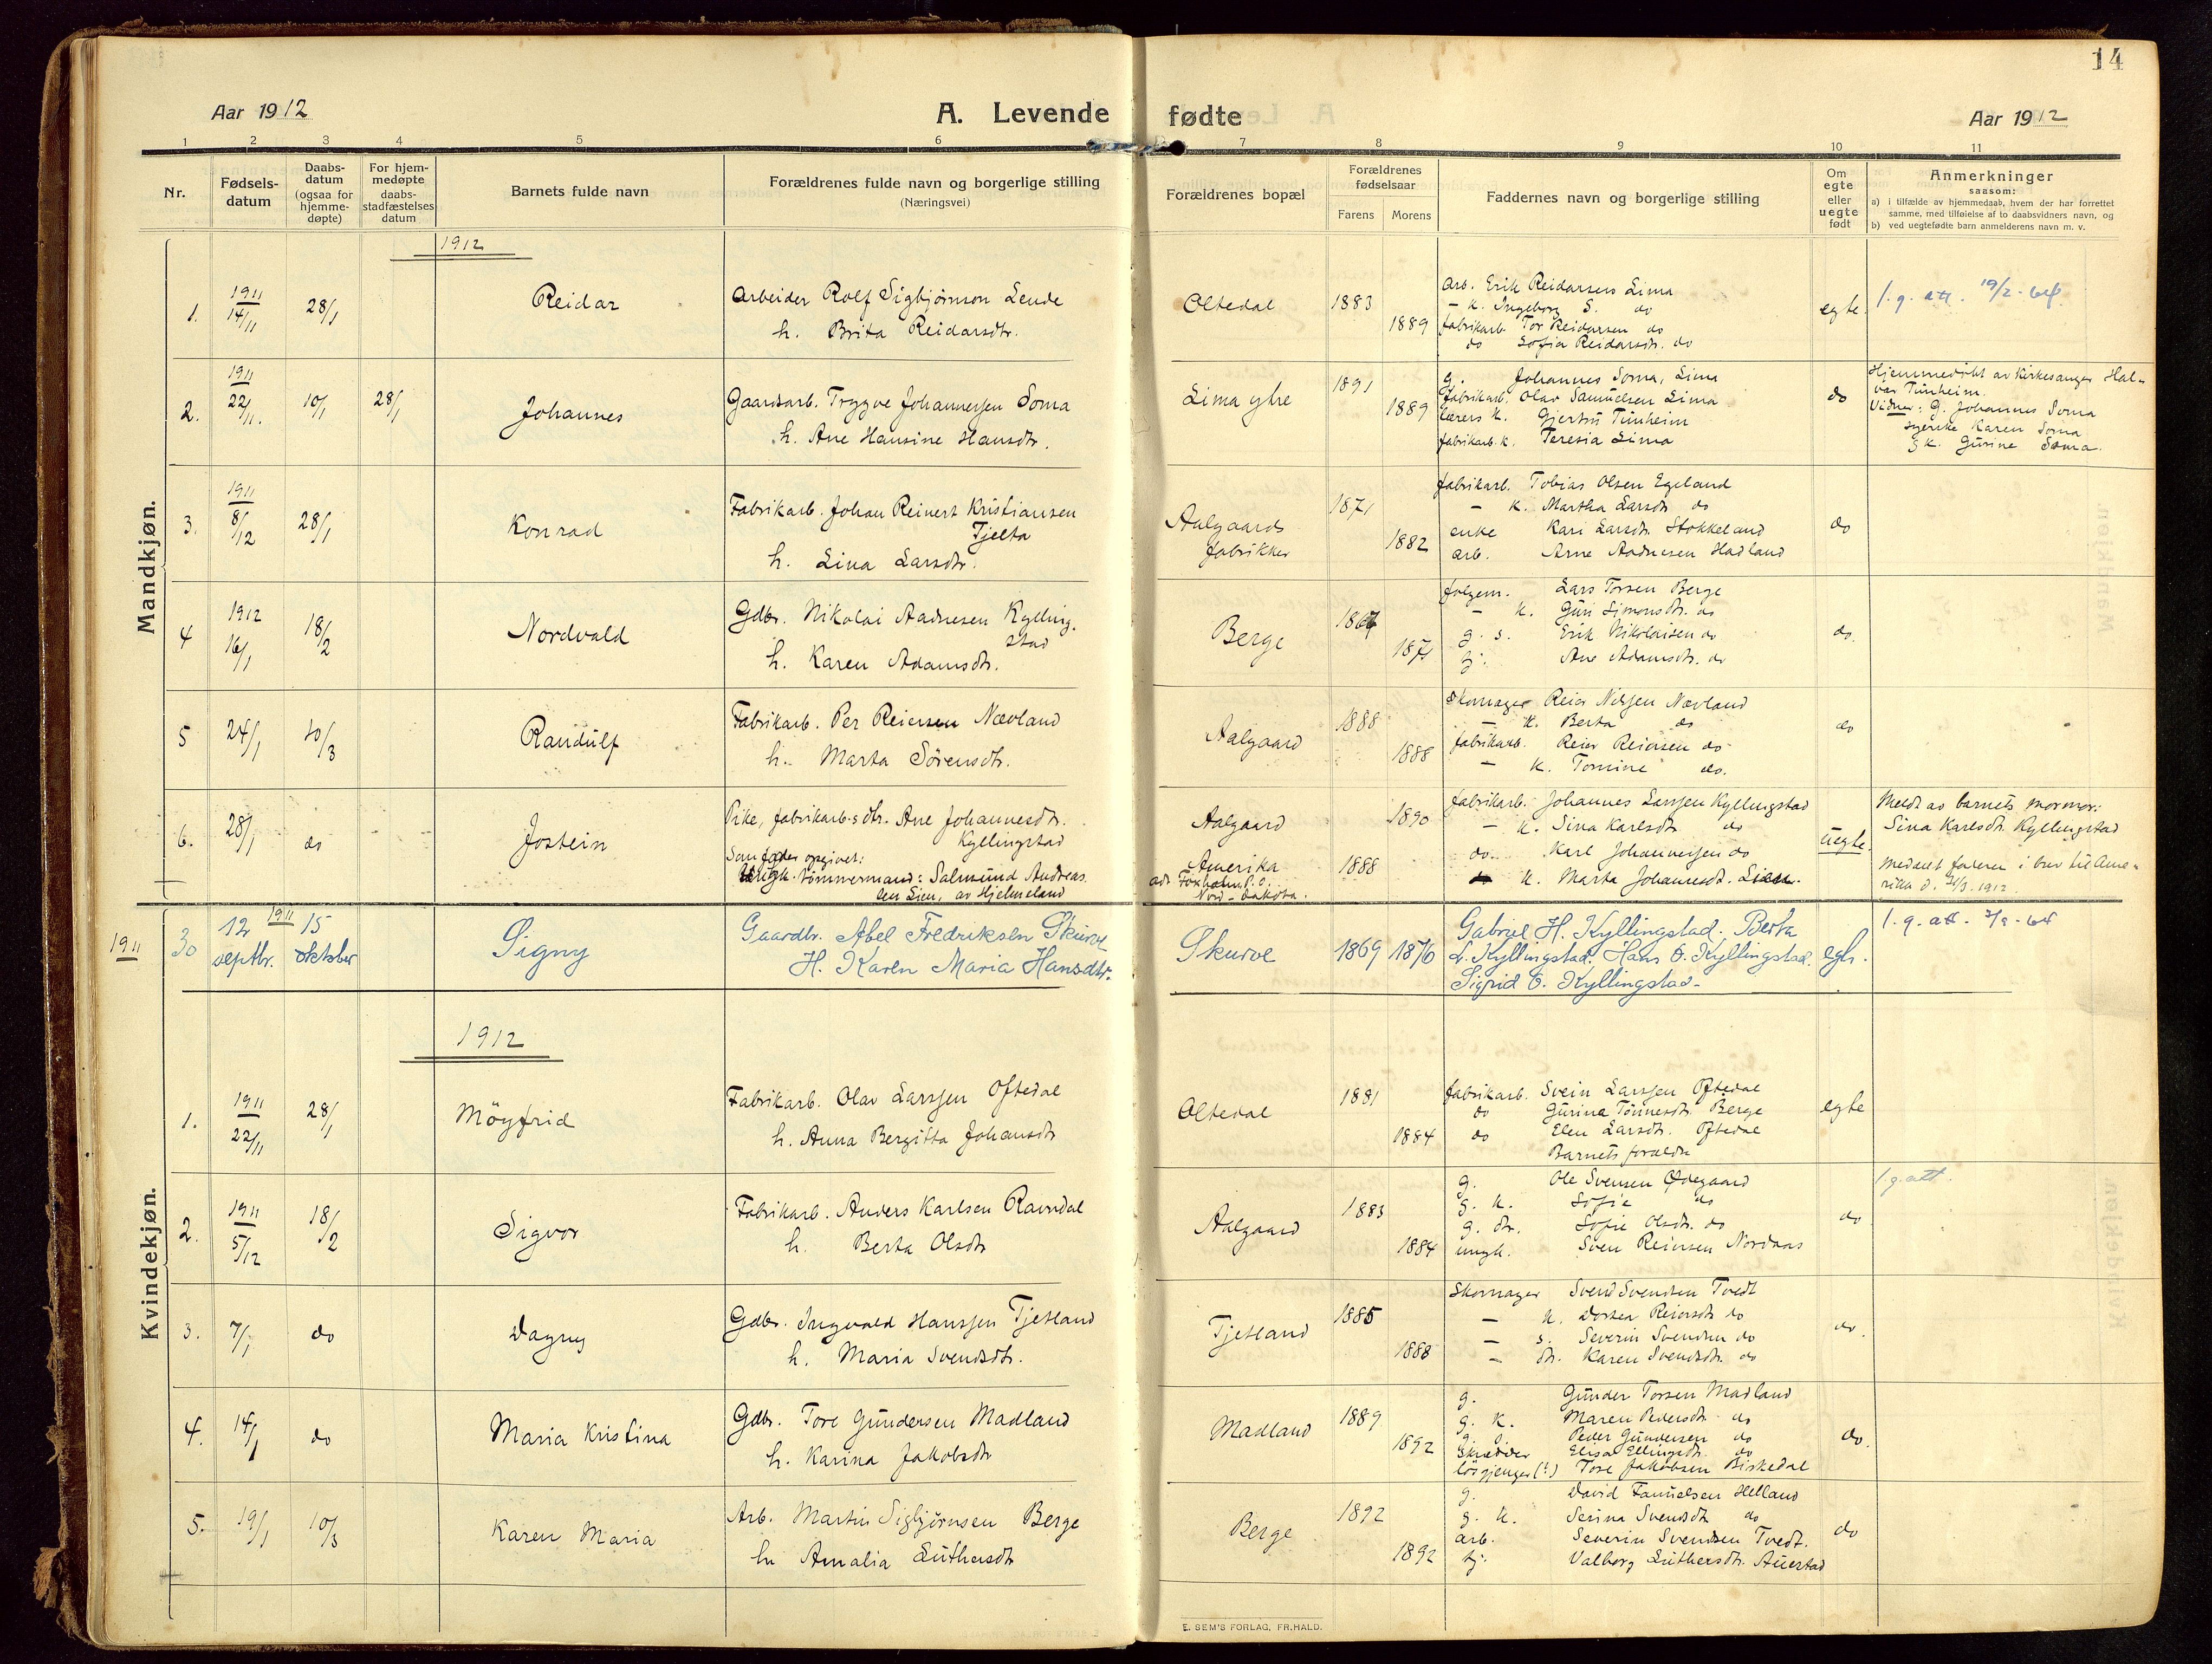 14
Aar 1912
A. Levende fødte
Aar 1912
1 2 3 4 5 6 7 8 9 10 11
Nr.
Fødsels-
datum
Daabs-
datum
(ogsaa for
hjemme-
døpte)
For hjem-
medøpte
daabs-
stadfæstelses
datum
Barnets fulde navn
Forældrenes fulde navn og borgerlige stilling
(Næringsvei)
Forældrenes bopæl
Forældrenes
fødselsaar
Farens Morens
Faddernes navn og borgerlige stilling
Om
egte
eller
uegte
født
Anmerkninger
saasom:
a) i tilfælde av hjemmedaab, hvem der har forrettet
samme, med tilføielse af to daabsvidners navn, og
b) ved uegtefødte barn anmelderens navn m. v.
Mandkjøn.
1912
1. 1911 14/11 28/1
Reidar
Arbeider Rolf Sigbjørnson Lende
h. Brita Reidarsdtr.
Oltedal
1883
1889
Arb. Erik Reidarsens Lima
— k. Ingeborg S. do
fabrikarb. Tor Reidarsen do
do Sofia Reidarsdtr. do
egte.
l. g. att. 19/2-64
2. 1911 22/11. 10/1 28/1
Johannes
Gaardsarb. Trygve Johannessen Soma
h. Ane Hansine Hansdtr.
Lima yhre
1891
1889
g. Johannes Soma, Lima
fabrikarb. Olav Samuelsen Lima
lærers k. Gjertru Tunheim
fabrikarb. k. Teresia Lima
do
Hjemmedøbt av Kirkesanger Hal-
vor Tunheim.
Vidner: g. Johannes Soma
syerske Karen Soma
g k. Gurine Soma.
3. 1911 8/12 28/1
Konrad
Fabrikarb. Johan Reinert Kristiansen
Tjelta
h. Lina Larsdtr.
Aalgaards
fabrikker
1871
1882
fabrikarb. Tobias Olsen Egeland
— k. Martha Larsdtr do
enke Kari Larsdtr. Stokkeland
arb. Arne Aadnesen Hadland
do
4 1912 16/1 18/2
Nordvald
Gdbr. Nikolai Aadnesen Kylling-
stad
h. Karen Adamsdtr.
Berge
1871
folgem. Lars Torsen Berge
— k. Guri Simonsdtr. do
g. s. Erik Nikolaisen do
tj. Ane Adamsdtr. do
do.
5 24/1 10/3
Randulf
Fabrikarb. Per Reiersen Nævland
h. Marta Sørensdtr.
Aalgaard
1888
1888
Skomager Reier Nilsen Nævland
— k. Berta do
fabrikarb. Reier Reiersen do
— k. Tomine do.
do
6. 28/1 do
Jostein
Pike, fabrikarb.s dtr. Ane Johannesdtr.
Kyllingstad
Som fader opgivet:
Ungk. tømmermand: Salmund Andreas
sen Lien, av Hjelmeland
Aalgaard
Amerika
adr. Foxholm P.O.
Nord-Dakota.
1890
1888
fabrikarb. Johannes Larsen Kyllingstad
— k. Sina Karlsdtr. do
do. Karl Johannessen do
k. Marta Johannesdtr. Lien.
uegte
Meldt av barnets mormor:
Sina Karlsdtr. Kyllingstad
Meddelt faderen i brev til Ame-
rika d. 21/3. 1912.
1911 30 12 1911 15
septbr. oktober
Signy
Gaardbr. Abel Fredriksen Skurve
H. Karen Maria Hansdtr.
Skurve
1869 1876
Gabriel H. Kyllingstad. Berta
L. Kyllingstad. Hans O. Kyllingstad.
Sigrid O. Kyllingstad.
egte.
l. g. att.
Kvindekjøn.
1912
1. 1911 22/11 28/1
Møyfrid
Fabrikarb. Olav Larssen Oftedal
h. Anna Bergitta Johansdtr
Oltedal
1881
1884
fabrikarb. Svein Larssen Oftedal
do Gurina Tønnesdtr. Berge
do Elen Larsdtr. Oftedal
Barnets foreldre
egte
2. 1911 5/12 18/2
Sigvor
Fabrikarb. Anders Karlsen Ravndal
h. Berta Olsdtr
Aalgaard
1883
1884
g. Ole Svensen Ødegaard
g. k. Sofie do
g. dtr. Sofie Olsdtr. do
ungk. Sven Reiersen Nordaas
do
l. g. att.
3. 7/1 do
Dagny
Gdbr. Ingvald Hanssen Tjetland
h. Maria Svendsdtr.
Tjetland
1885
1888
Skomager Svend Svendsen Tvedt
— k. Dortea Reiersdtr do
— s. Severin Svendsen do
— dtr. Karen Svendsdtr. do
do.
4. 14/1 do
Maria Kristina
Gdbr. Tore Gundersen Madland
h. Karina Jakobsdtr
Madland
1889
1892
g. Gunder Torsen Madland
g. k. Maren Pedersdtr do
g. s. Peder Gundersen do
Skrædder Elisa Ellingsdtr. do
løsgjenger (?) Tore Jakobsen Birkedal
do.
5. 19/1 10/3
Karen Maria
Arb. Martin Sigbjørnsen Berge
h. Amalia Luthersdtr
Berge
1892
1892
g. David Samuelsen Helland
g. k. Serina Svendsdtr do
arb. Severin Svendsen Tvedt.
tj. Valborg Luthersdtr. Auestad
do
E. SEM'S FORLAG, FR.HALD.